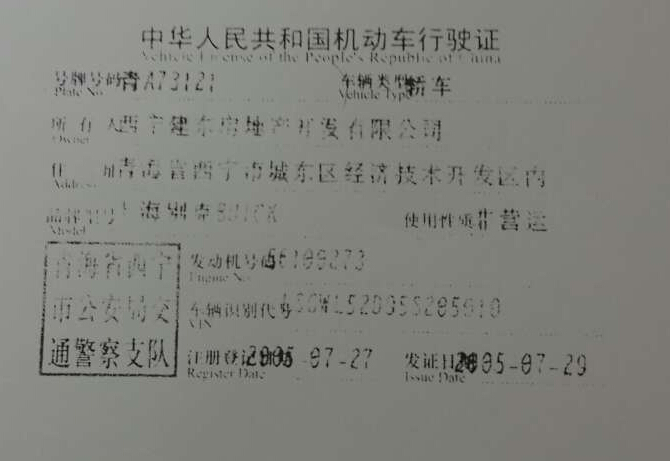 中华人民共和国机动车行驶证
Vehicle License of the People's Republic of China
号牌号码 青A73121 车辆类型 轿车
Plate No. Vehicle Type
所有人 西宁建东房地产开发有限公司
Owner
住址 青海省西宁市城东区经济技术开发区内
Address
品牌型号 上海别克BUICK 使用性质 非营运
Model
青海省西宁 发动机号码 56109273
Engine No.
市公安局交 车辆识别代号
VIN
通警察支队 注册登记日期 2005-07-27 发证日期 2005-07-29
Register Date Issue Date